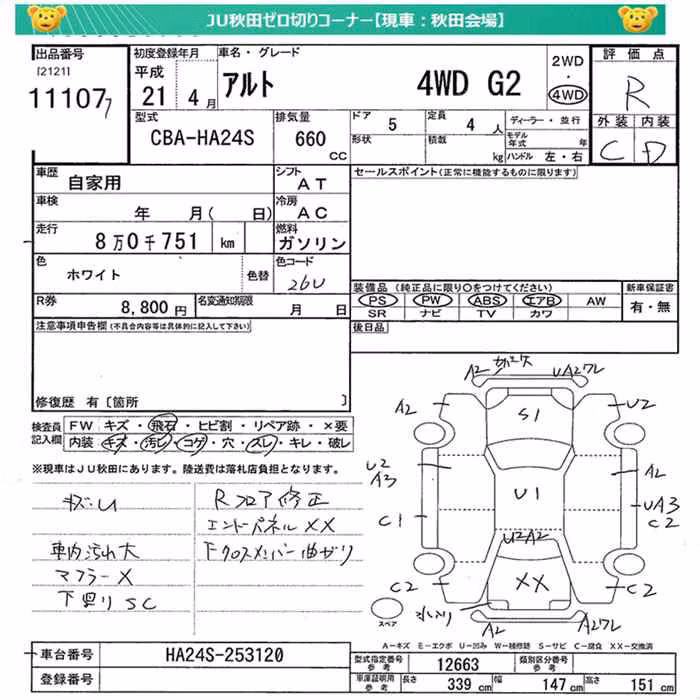 JU秋田ゼロ切りコーナー【現車：秋田会場】
出品番号 初度登録年月 車名・グレード 2WD ・ 4WD 評価点
[2121] 平成
11107 21 4月 アルト 4WD G2 R
型式 排気量 ドア 5 定員 4人 ディーラー・並行 外装 内装
CBA-HA24S 660 CC 形状 積載 kg モデル年式 年 ハンドル 左・右 C D
車歴 自家用 シフト AT セールスポイント(正常に機能するものに限ります)
車検 年 月( 日) 冷房 AC
走行 8万0千751 km 燃料 ガソリン
色 ホワイト 色替 色コード 26U
装備品 (純正品に限り○をつけてください) 新車保証書
PS PW ABS エアB AW 有・無
SR ナビ TV カワ
R券 8,800円 名変通知期限 月 日
後日品
注意事項申告欄(不具合内容等は具体的に記入して下さい)
修復歴 有 [箇所 ]
検査員記入欄 FW キズ・飛石・ヒビ割・リペア跡・×要
内装 キズ・汚レ・コゲ・穴・スレ・キレ・破レ
※現車はJU秋田にあります。陸送費は落札店負担となります。
キズ・U Rフロア修正
エンドパネルXX
車内汚れ大 下クロスメンバー曲ガリ
マフラーX
下廻りSC
A2 UA2ワレ
A2 S1 U2
U2 A3 U1 A2
C1 UA3 C2
U2A2
C2 XX C2
A2 A2ワレ
スペア
A-キズ E-エクボ U-凹み W-補修跡 S-サビ C-腐食 XX-交換済
車台番号 HA24S-253120
登録番号
型式指定番号 参考 12663 類別区分番号 参考
車庫証明用 参考 長さ 339cm 幅 147cm 高さ 151cm